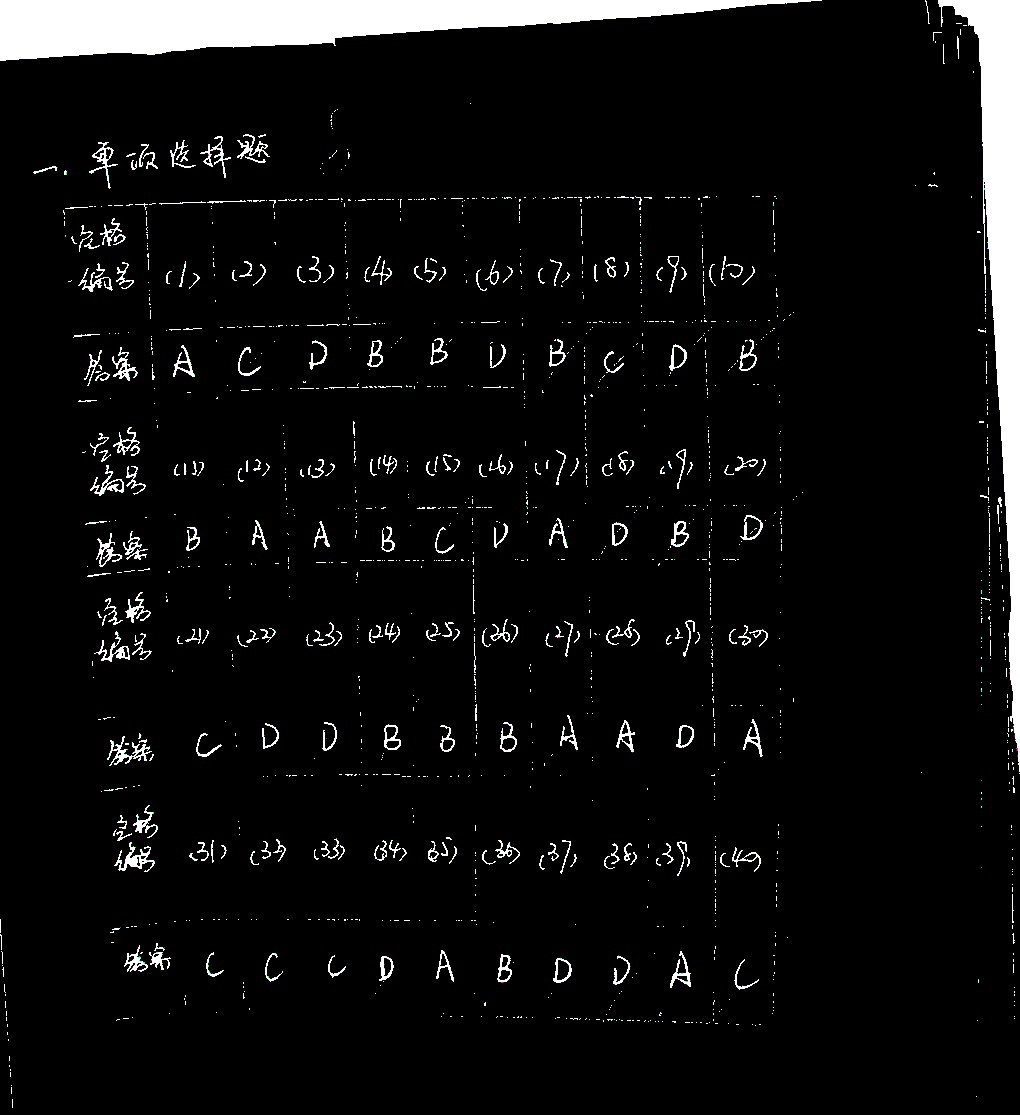 一. 单项选择题
空格编号 (1) (2) (3) (4) (5) (6) (7) (8) (9) (10)
答案 A C D B B D B C D B
空格编号 (11) (12) (13) (14) (15) (16) (17) (18) (19) (20)
答案 B A A B C D A D B D
空格编号 (21) (22) (23) (24) (25) (26) (27) (28) (29) (30)
答案 C D D B B B A A D A
空格编号 (31) (32) (33) (34) (35) (36) (37) (38) (39) (40)
答案 C C C D A B D D A C